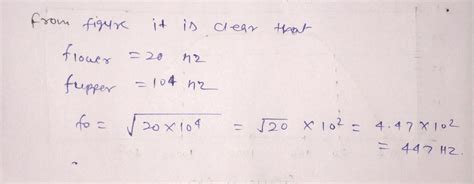 from figure it is clear that
flower = 20 HZ
fupper = 10⁴ HZ
fo = √20×10⁴ = √20 × 10² = 4.47×10²
= 447 HZ.